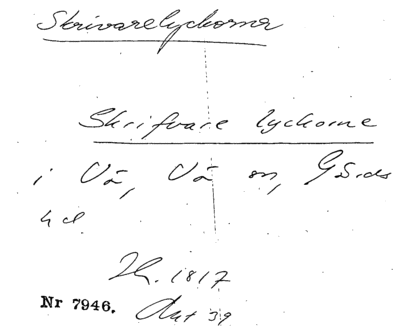 Skrivarelyckorna
Skrifvare lyckorne
i Vä, Vä sn, Gärds
hd.
Lh. 1817
Nr 7946. Akt 39